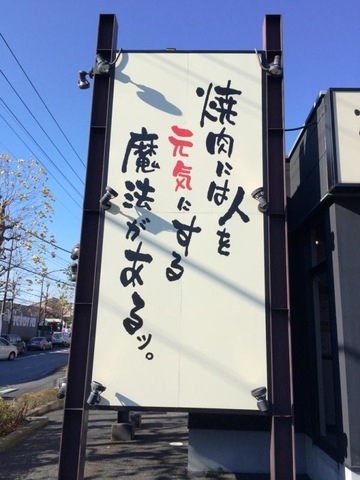 焼肉には人を
元気にする
魔法があるッ。